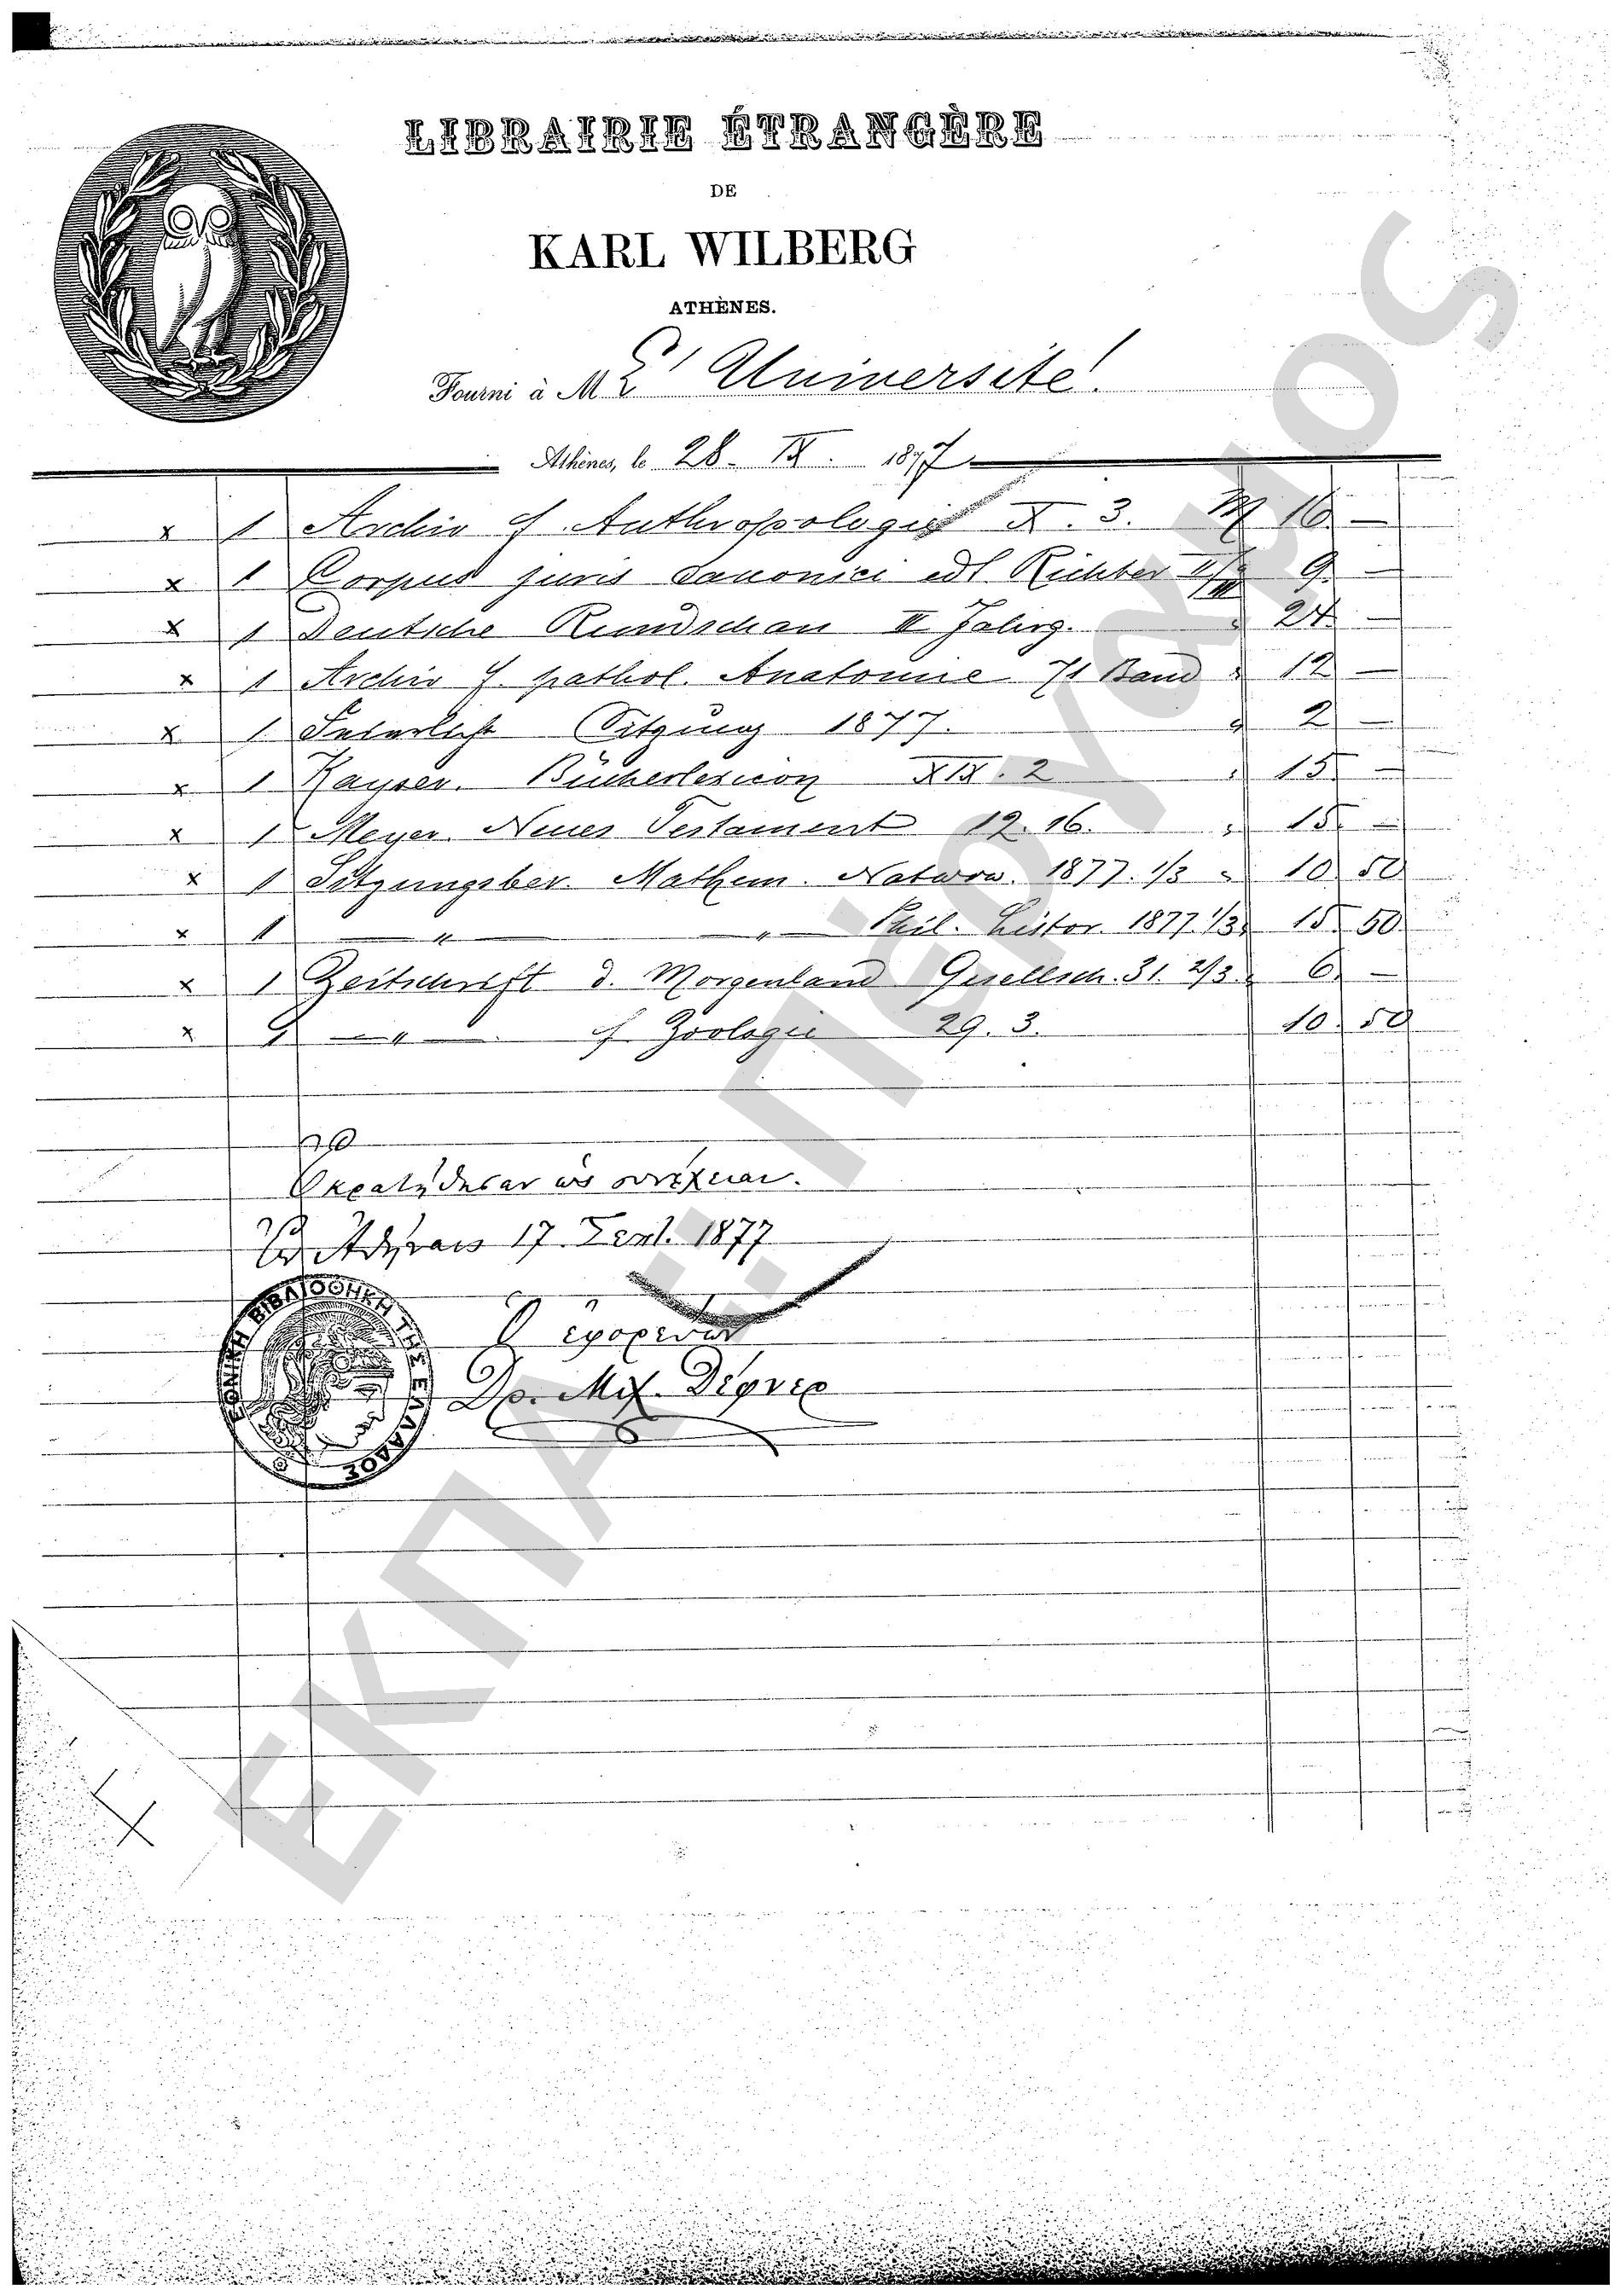 LIBRAIRIE ÉTRANGÈRE
DE
KARL WILBERG
ATHÈNES.
Fourni à M L' Université.
Athènes, le 28. IX. 1877
x 1 Archiv f. Anthropologie X. 3. M 16 —
x 1 Corpus juris canonici ed. Richter II/III 9. —
x 1 Deutsche Rundschau III Jahrg. " 24. —
x 1 Archiv f. pathol. Anatomie 71 Band " 12 —
x 1 Sitzung 1877. " 2 —
x 1 Kayser. Bücherlexicon XIX. 2 " 15 —
x 1 Meyer. Neues Testament 12. 16. " 15. —
x 1 Sitzungsber. Mathem. Natw. 1877. 1/3 " 10 50
x 1 —"— —"— Phil. histor. 1877. 1/3 " 15. 50
x 1 Zeitschrift d. Morgenland Gesellsch. 31. 2/3 " 6. —
x 1 —"— f Zoologie 29. 3. 10. 50
Ἐκρατήθησαν ὡς συνέχειαι.
Ἐν Ἀθήναις 17. Σεπτ. 1877
Ὁ ἐφορεύων
Δρ. Μιχ. Δέφνερ
ΕΘΝΙΚΗ ΒΙΒΛΙΟΘΗΚΗ ΤΗΣ ΕΛΛΑΔΟΣ
ΕΚΠΑ: Πέργαμος